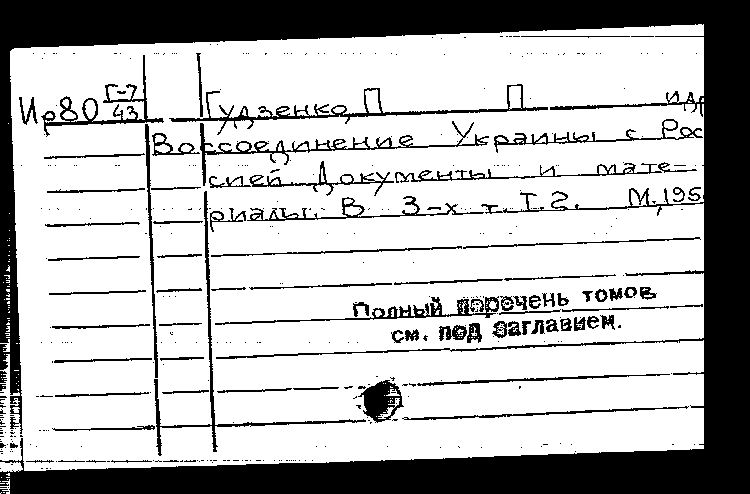 Ир80 Г-7/43 Гудзенко, П П и др
Воссоединение Украины с Рос
сией. Документы и мате-
риалы. В 3-х т. Т. 2. М, 195
Полный перечень томов
см. под заглавием.